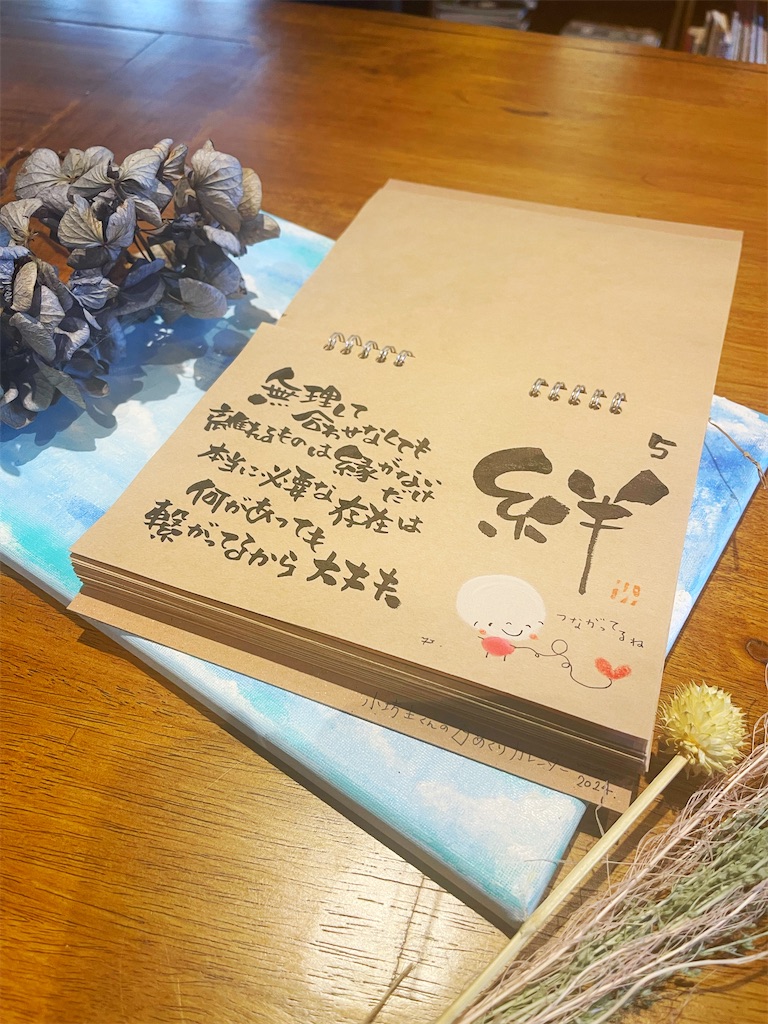 5
絆
無理して
合わせなくても
離れるものは縁がない
だけ
本当に必要な存在は
何があっても
繋がってるから大丈夫
つながってるね
小坊主くんの日めくりカレンダー 2024.